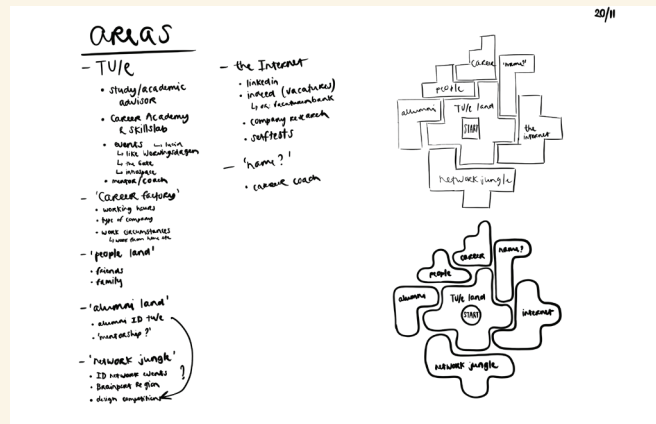 20/11
areas
- TU/e
• study/academic advisor
• Career Academy & skillslab
• events
↳ like Wervingsdagen
↳ the Gate
↳ innospace
• mentor/coach
- 'Career factory'
• working hours
• type of company
• work circumstances
↳ work from home etc
- 'people land'
• friends
• family
- 'alumni land'
• alumni ID tu/e
• 'mentorship?'
- 'network jungle'
• ID network events
• Brainport Region
• design competitions
?
- the Internet
• linkedin
• indeed (vacatures)
↳ or vacaturebank
• company research
• selftests
- 'name?'
• career coach
career
'name?'
people
alumni
TU/e land
START
the internet
network jungle
career
name?
people
alumni
TU/e land
START
internet
network jungle